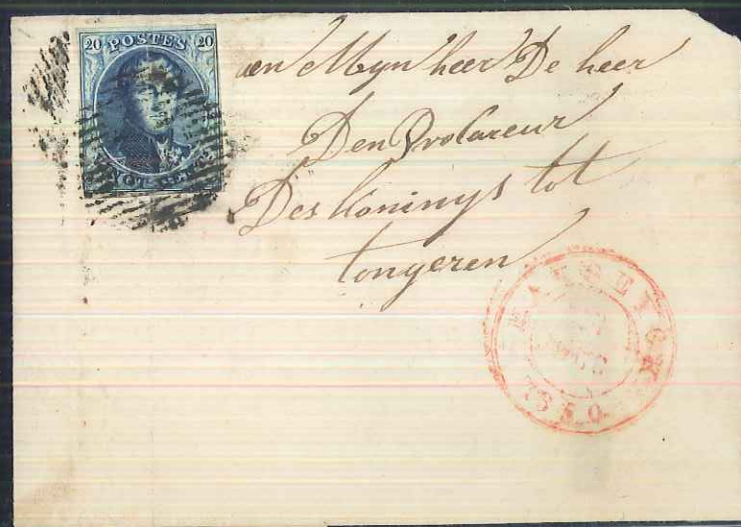 20 POSTES 20
VINGT CENTS
aen Mijn heer De heer
Den Procureur
Des Konings tot
tongeren
MAESEYCK
1850